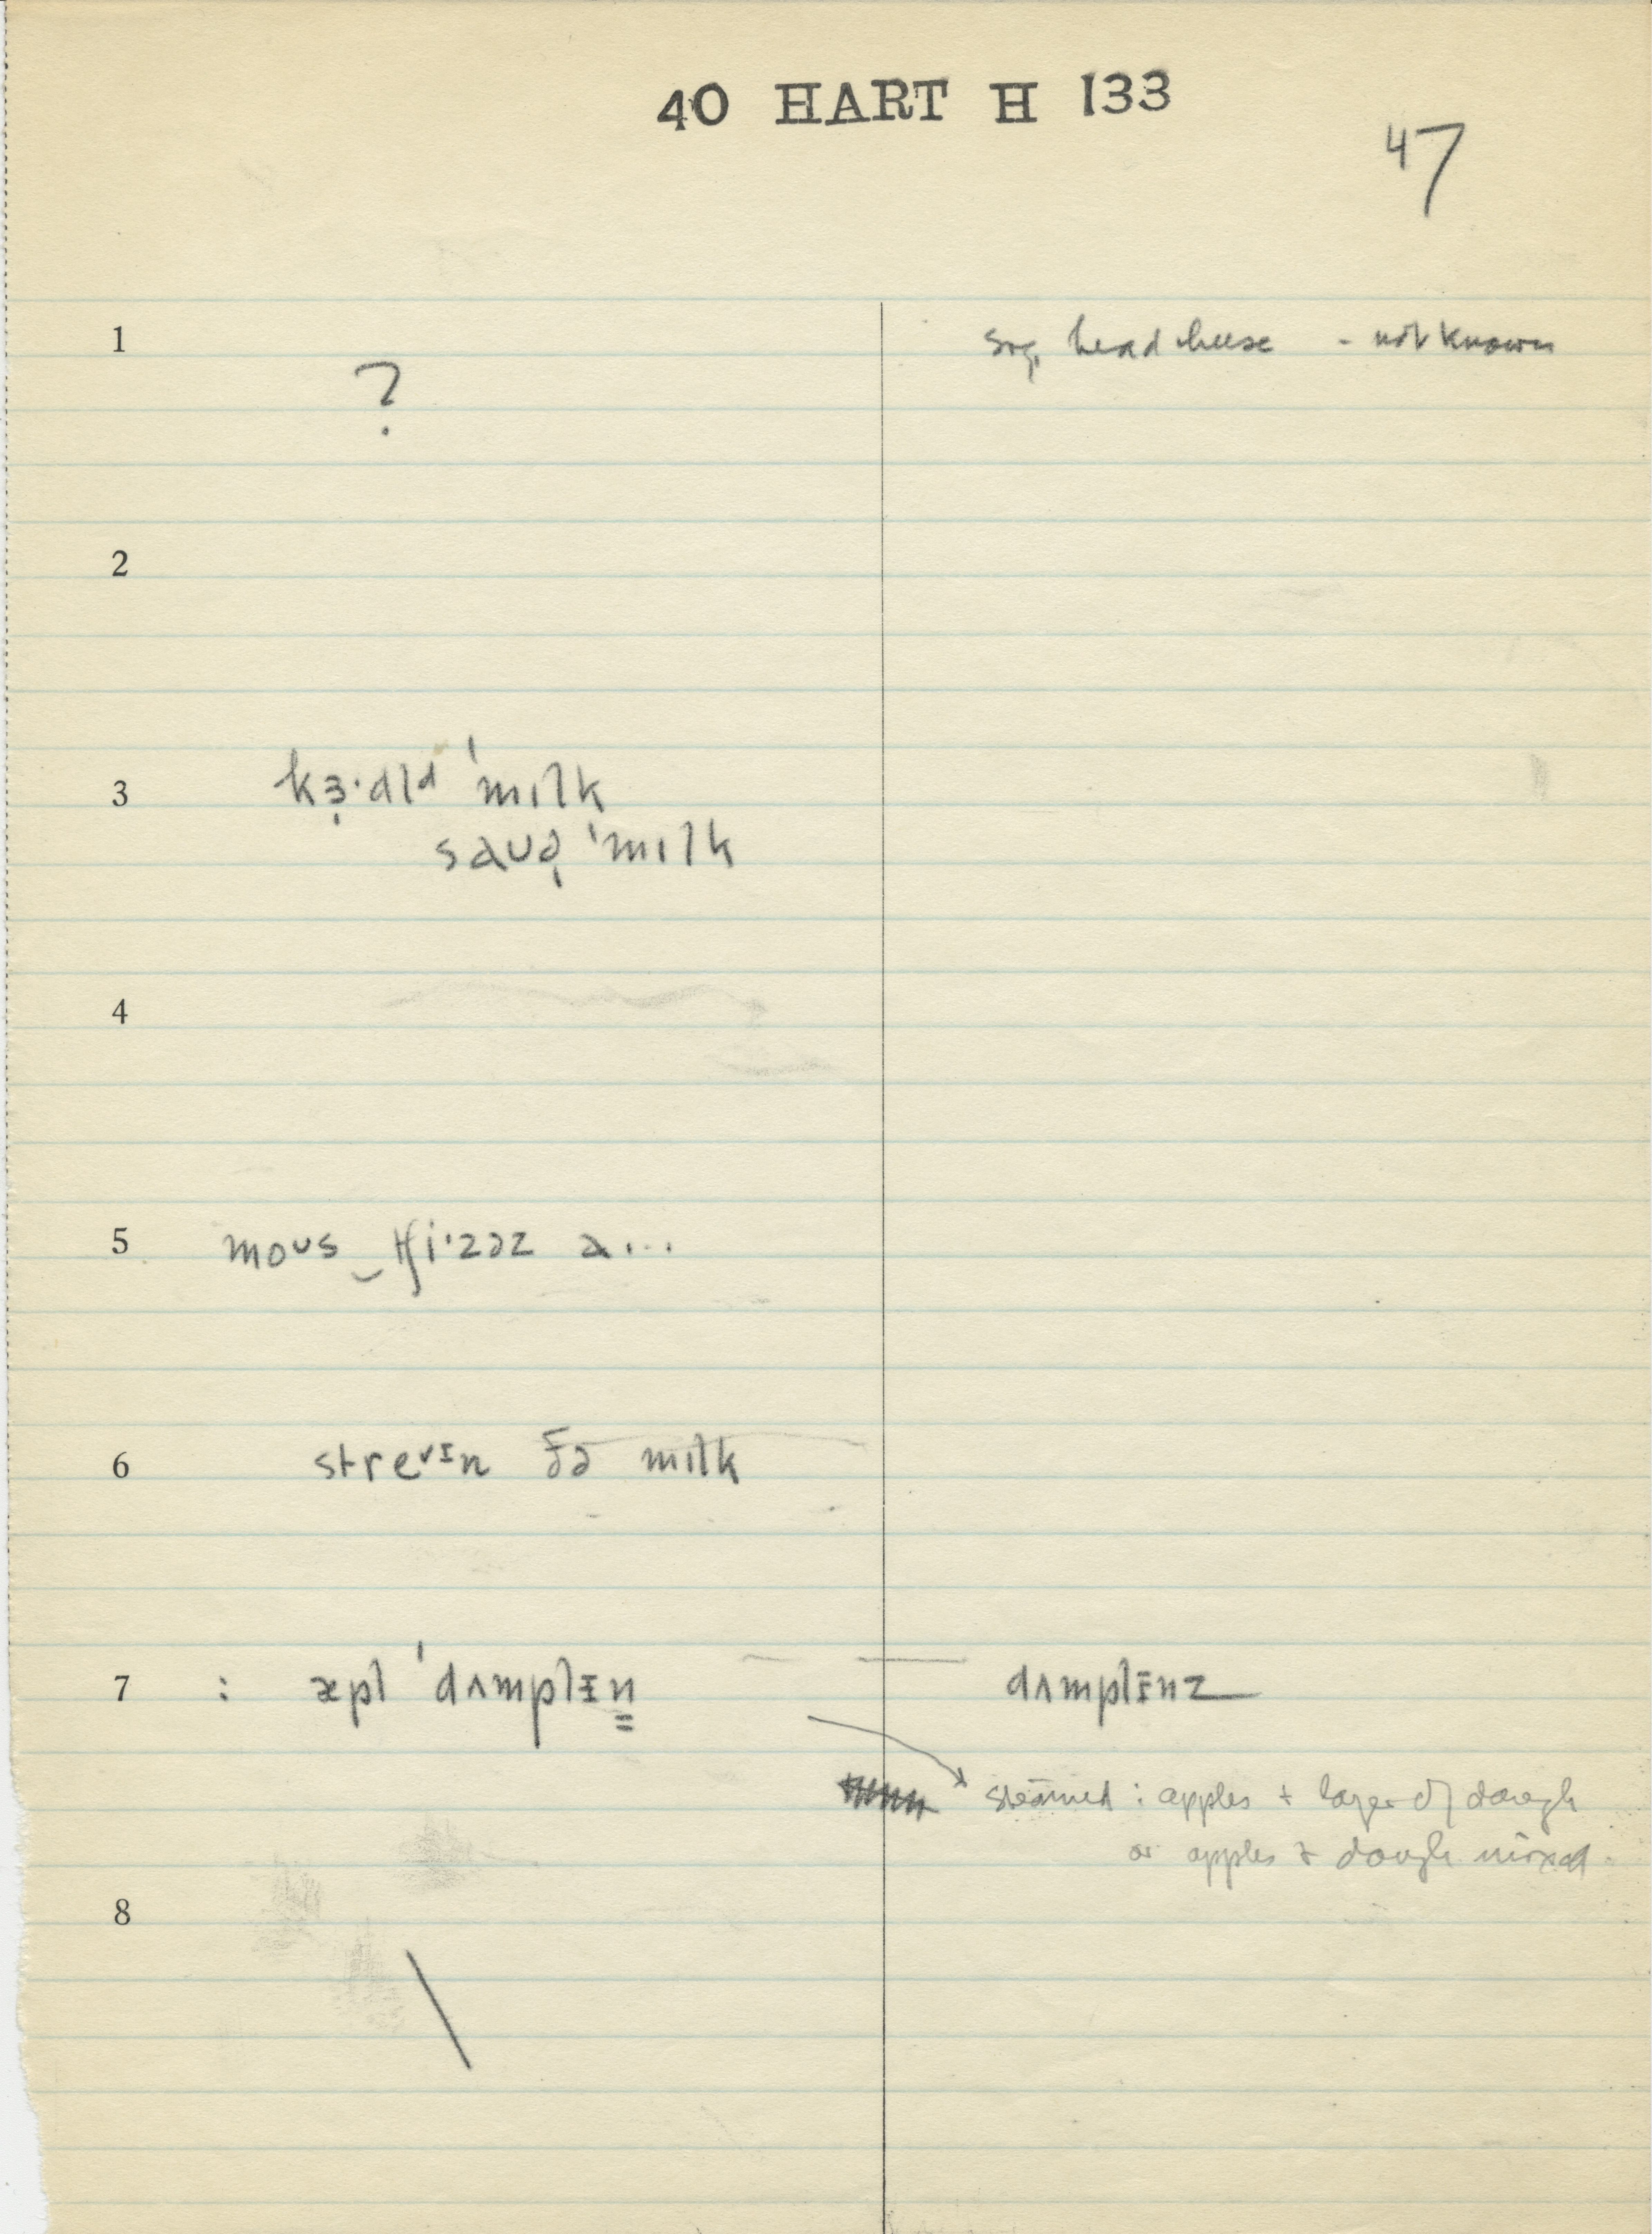 40 HART H 133
47
1
sug. head cheese - not known
?
2
3 kɜ̣·dld ˈmɪlk
sauə̣ ˈmɪlk
4
5 moᴜs ‿ tʃi·zəz a...
6 streᵛᴵn ðə milk
7 : æpl ˈdʌmplɪn̳ dʌmplɪnz
steamed : apples + layer of dough
or apples & dough mixed.
8
\